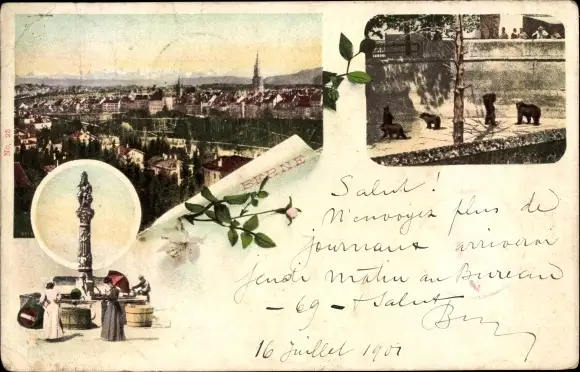 No. 25
BERNE
Salut!
N'envoyez plus de
journaux arriverai
jeudi matin au Bureau
- 69 - Salut
16 Juillet 1901